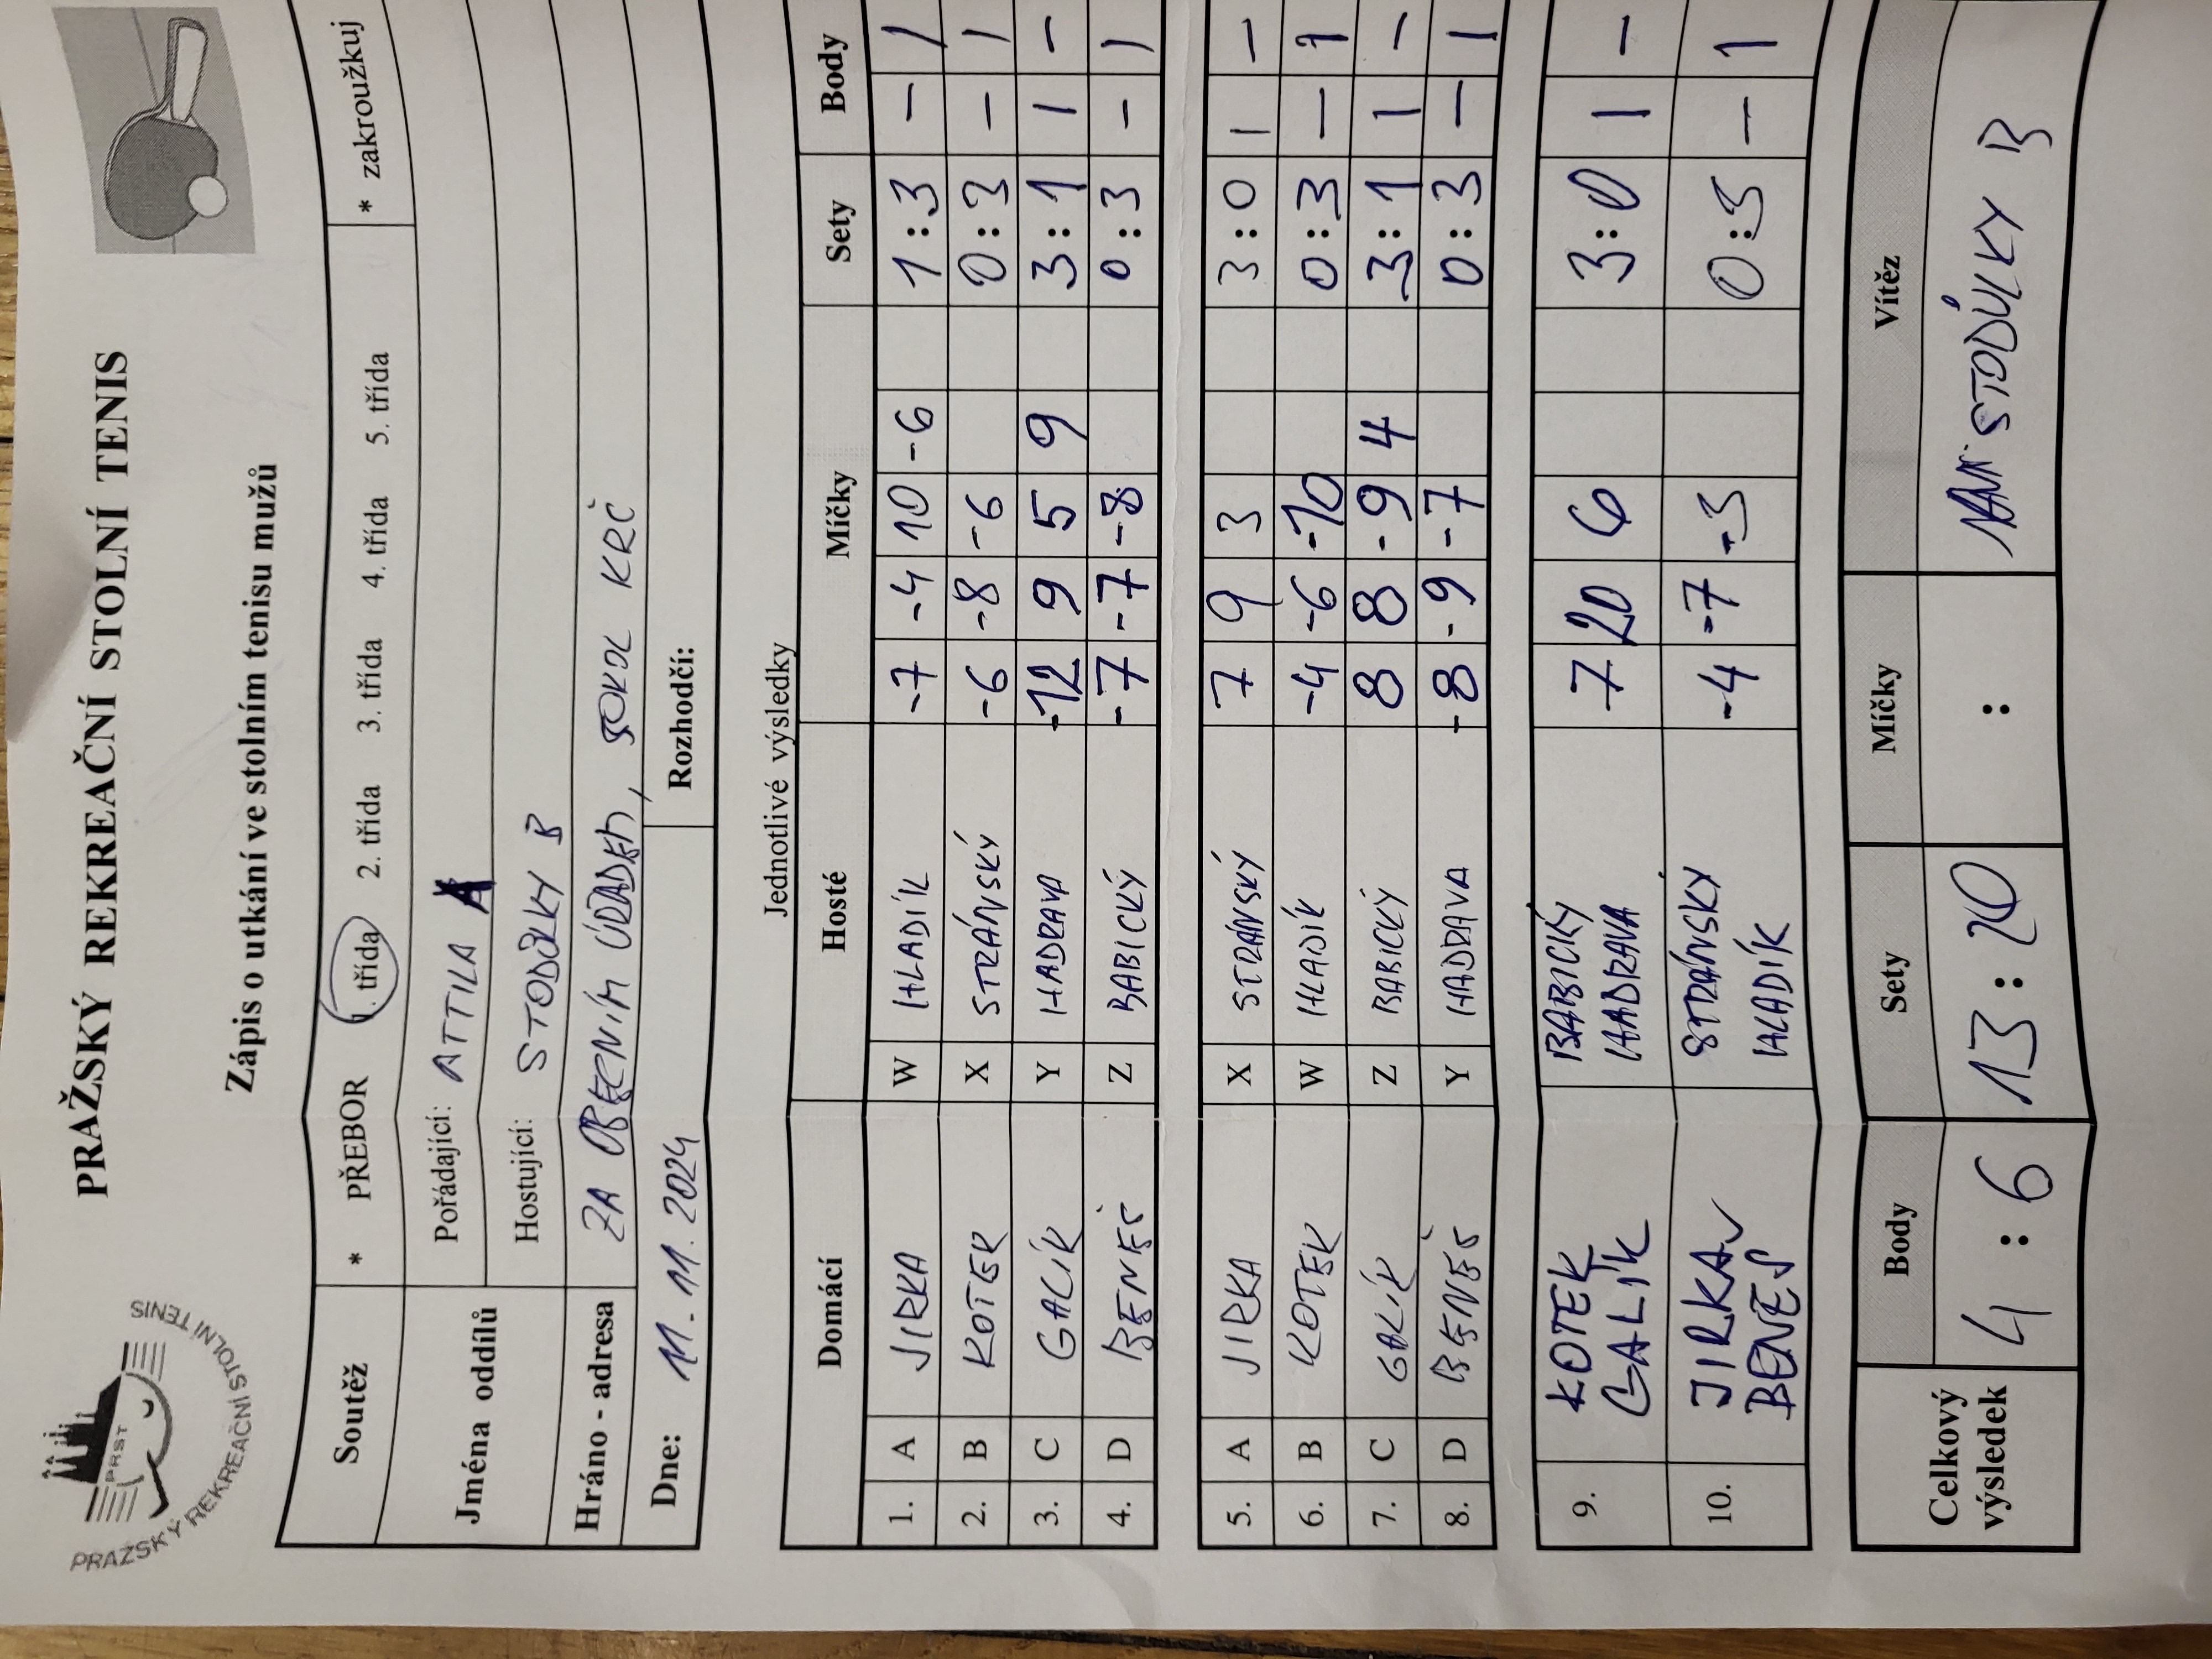 PRAŽSKÝ REKREAČNÍ STOLNÍ TENIS
PRST
PRAŽSKÝ REKREAČNÍ STOLNÍ TENIS
Zápis o utkání ve stolním tenisu mužů
Soutěž * PŘEBOR 1. třída 2. třída 3. třída 4. třída 5. třída * zakroužkuj
Jména oddílů Pořádající: ATTILA A
Hostující: STODŮLKY B
Hráno - adresa ZA OBECNÍM ÚŘADEM, SOKOL KRČ
Dne: 11.11.2024 Rozhodčí:
Jednotlivé výsledky
Domácí Hosté Míčky Sety Body
1. A JIRKA W HLADÍK -7 -4 10 -6 1:3 - 1
2. B KOTEK X STRÁNSKÝ -6 -8 -6 0:3 - 1
3. C GALÍK Y HADRAVA -12 9 5 9 3:1 1 -
4. D BENEŠ Z BABICKÝ -7 -7 -8 0:3 - 1
5. A JIRKA X STRÁNSKÝ 7 9 3 3:0 1 -
6. B KOTEK W HLADÍK -4 -6 -10 0:3 - 1
7. C GALÍK Z BABICKÝ 8 8 -9 4 3:1 1 -
8. D BENEŠ Y HADRAVA -8 -9 -7 0:3 - 1
9. KOTEK GALÍK BABICKÝ HADRAVA 7 20 6 3:0 1 -
10. JIRKA BENEŠ STRÁNSKÝ HLADÍK -4 -7 -3 0:3 - 1
Celkový výsledek Body Sety Míčky Vítěz
4:6 13:20 : STODŮLKY B